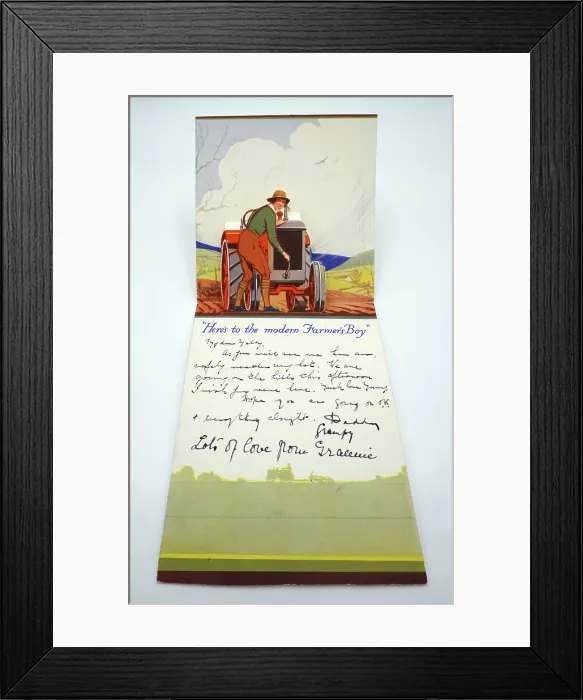 "Here's to the modern Farmer's Boy"
My dear
As you will see we have
safely very hot. We are
going on the hills this afternoon
I wish you were here.
Hope you are going on O.K.
& everything alright. Daddy
Grampy
Lots of love from Grannie